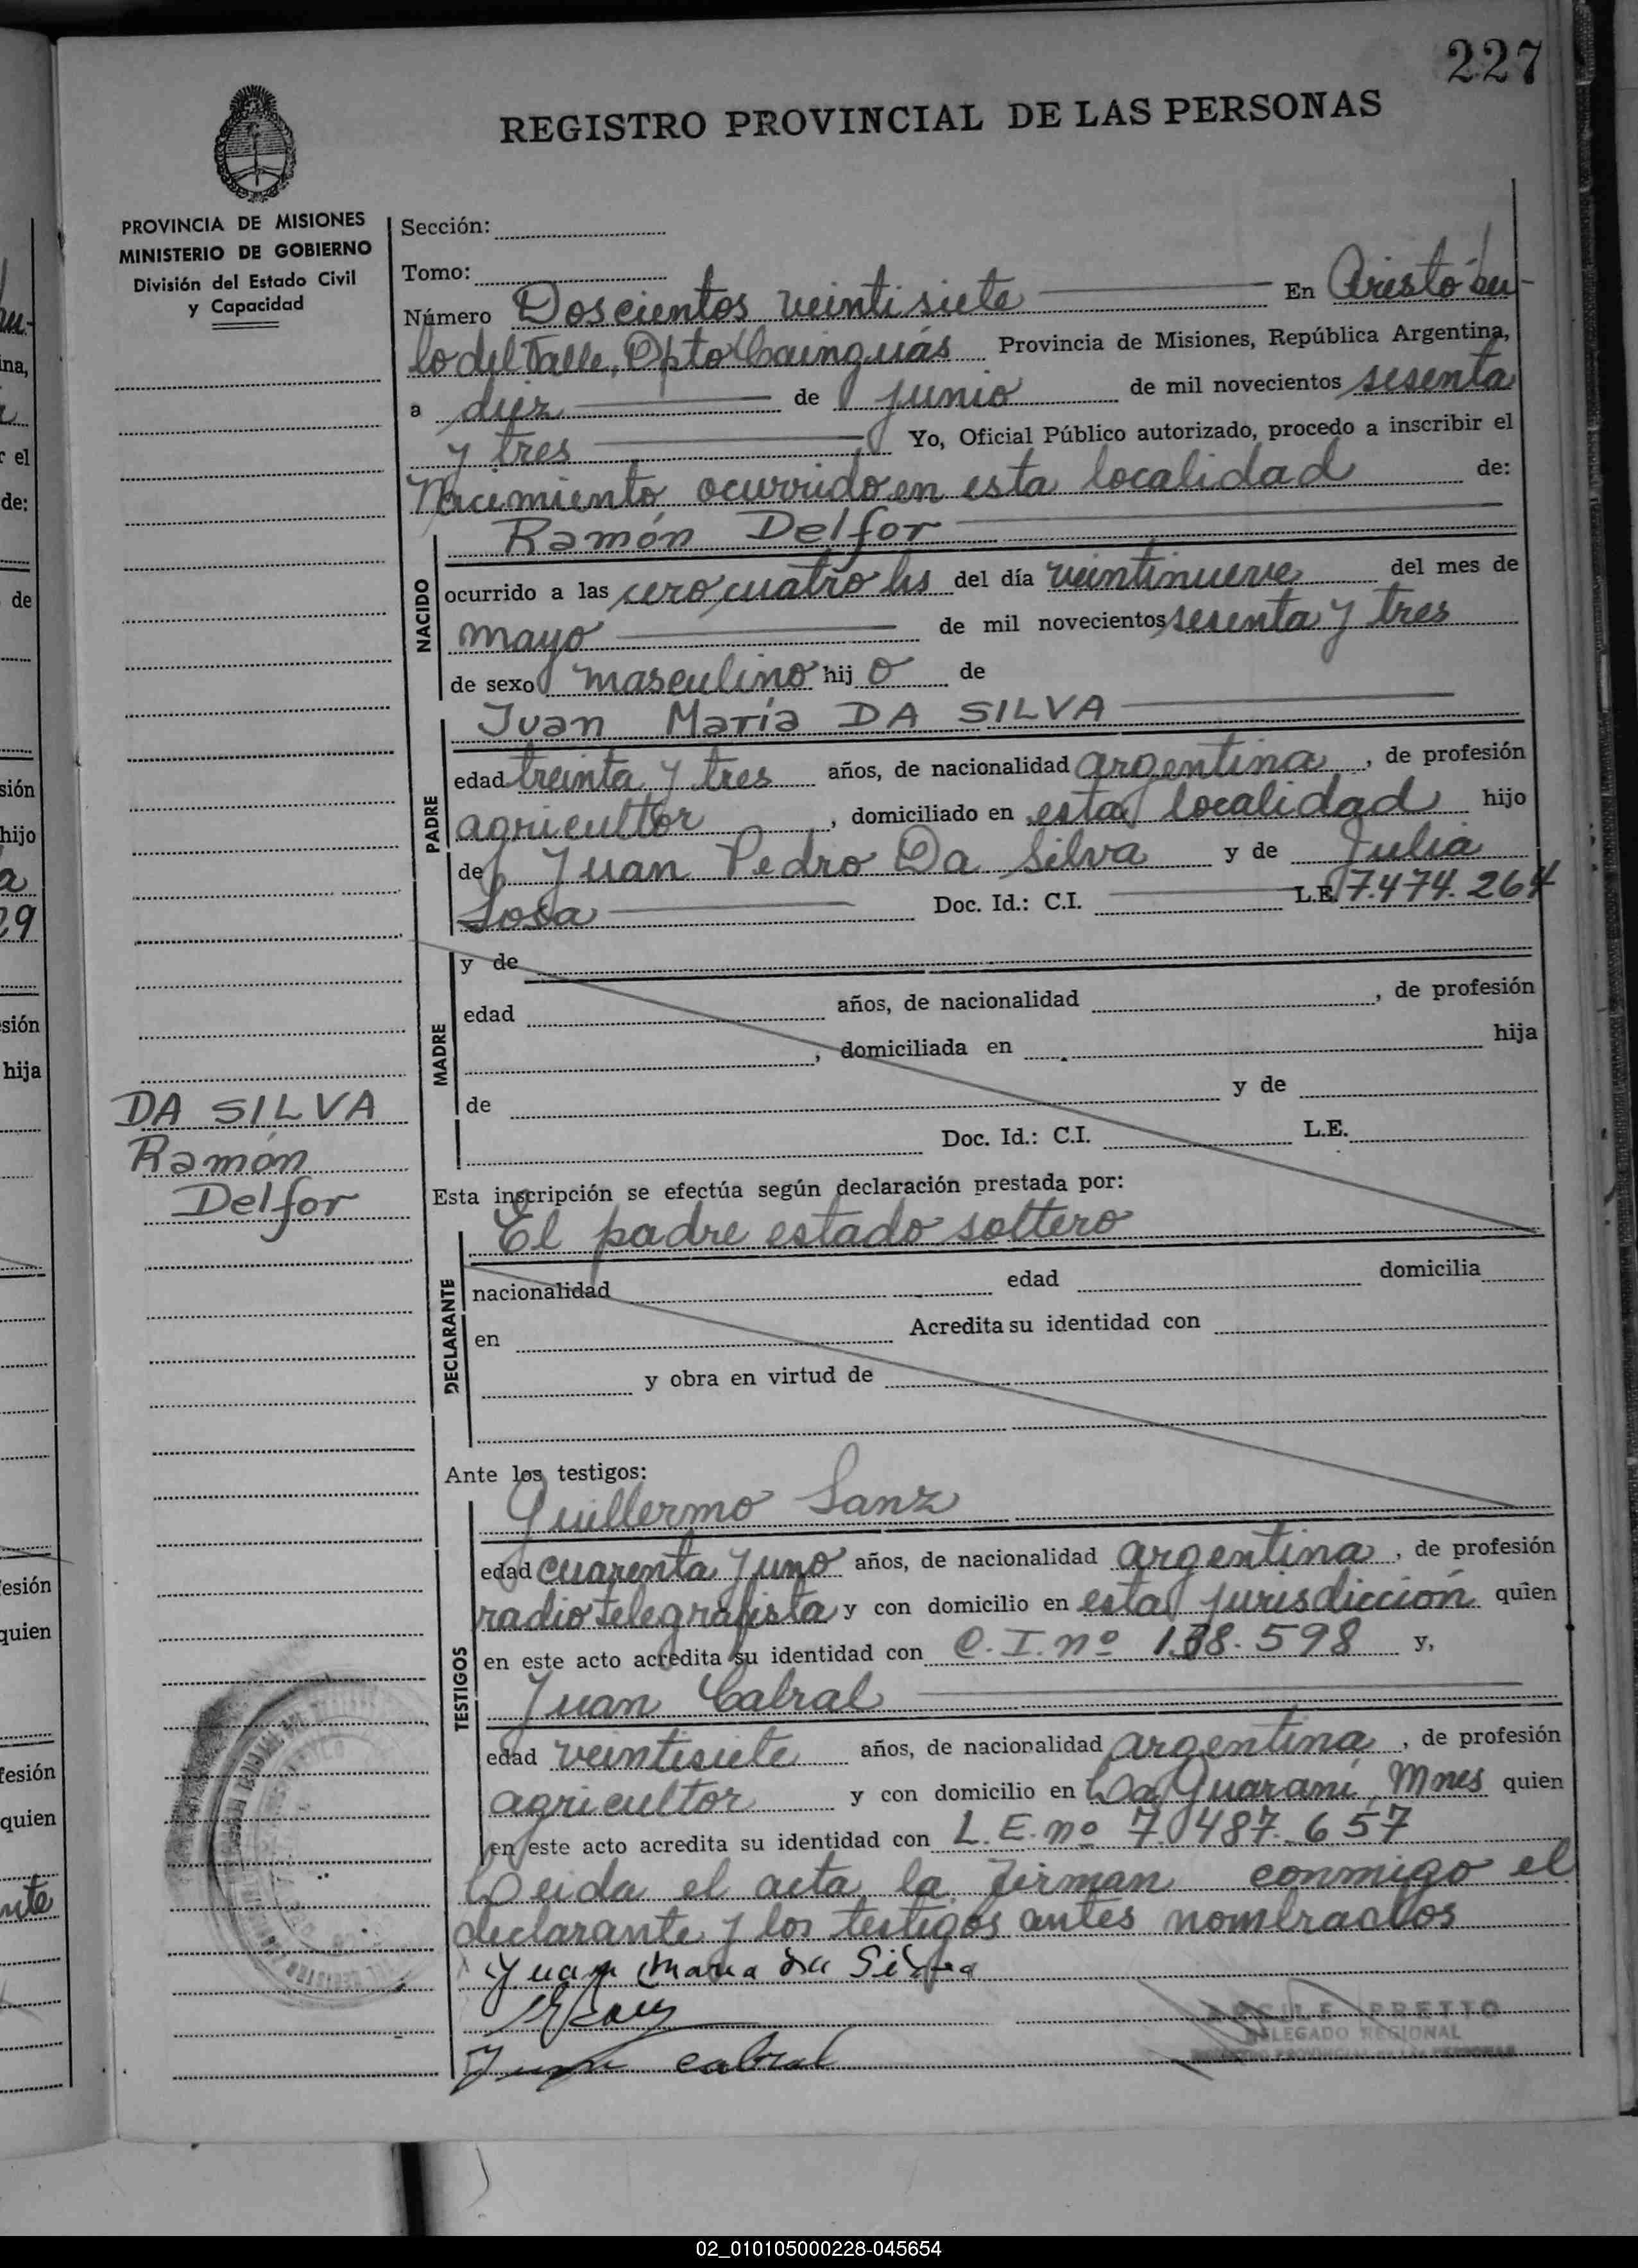 227
REGISTRO PROVINCIAL DE LAS PERSONAS
PROVINCIA DE MISIONES
MINISTERIO DE GOBIERNO
División del Estado Civil
y Capacidad
Sección:
Tomo:
Número Doscientos veintisiete En Aristóbu-
lo del Valle, Dpto Cainguás Provincia de Misiones, República Argentina,
a diez de junio de mil novecientos sesenta
y tres Yo, Oficial Público autorizado, procedo a inscribir el
Nacimiento ocurrido en esta localidad de:
Ramón Delfor
NACIDO
ocurrido a las cero cuatro hs del día veintinueve del mes de
mayo de mil novecientos sesenta y tres
de sexo masculino hij o de
Juan María DA SILVA
PADRE
edad treinta y tres años, de nacionalidad argentina, de profesión
agricultor, domiciliado en esta localidad hijo
de Juan Pedro Da Silva y de Julia
Sosa Doc. Id.: C.I. L.E. 7.474.264
MADRE
y de
edad años, de nacionalidad , de profesión
, domiciliada en hija
de y de
Doc. Id.: C.I. L.E.
DA SILVA
Ramón
Delfor
Esta inscripción se efectúa según declaración prestada por:
El padre estado soltero
DECLARANTE
nacionalidad edad domicilia
en Acredita su identidad con
y obra en virtud de
Ante los testigos:
Guillermo Sanz
TESTIGOS
edad cuarenta y uno años, de nacionalidad argentina, de profesión
radiotelegrafista y con domicilio en esta jurisdicción quien
en este acto acredita su identidad con C.I. nº 138.598 y,
Juan Cabral
edad veintisiete años, de nacionalidad argentina, de profesión
agricultor y con domicilio en Guaraní, Mnes quien
en este acto acredita su identidad con L.E. nº 7.487.657
Leida el acta, la firman conmigo el
declarante y los testigos antes nombrados
Juan Maria da Silva
Juan cabral
PRETTO
DELEGADO REGIONAL
REGISTRO PROVINCIAL DE LAS PERSONAS
02_010105000228-045654